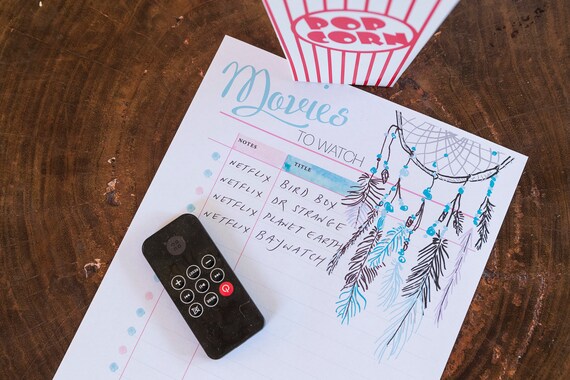 POP
CORN
Movies
TO WATCH
NOTES TITLE
NETFLIX BIRD BOY
NETFLIX DR STRANGE
NETFLIX PLANET EARTH
NETFLIX BAYWATCH